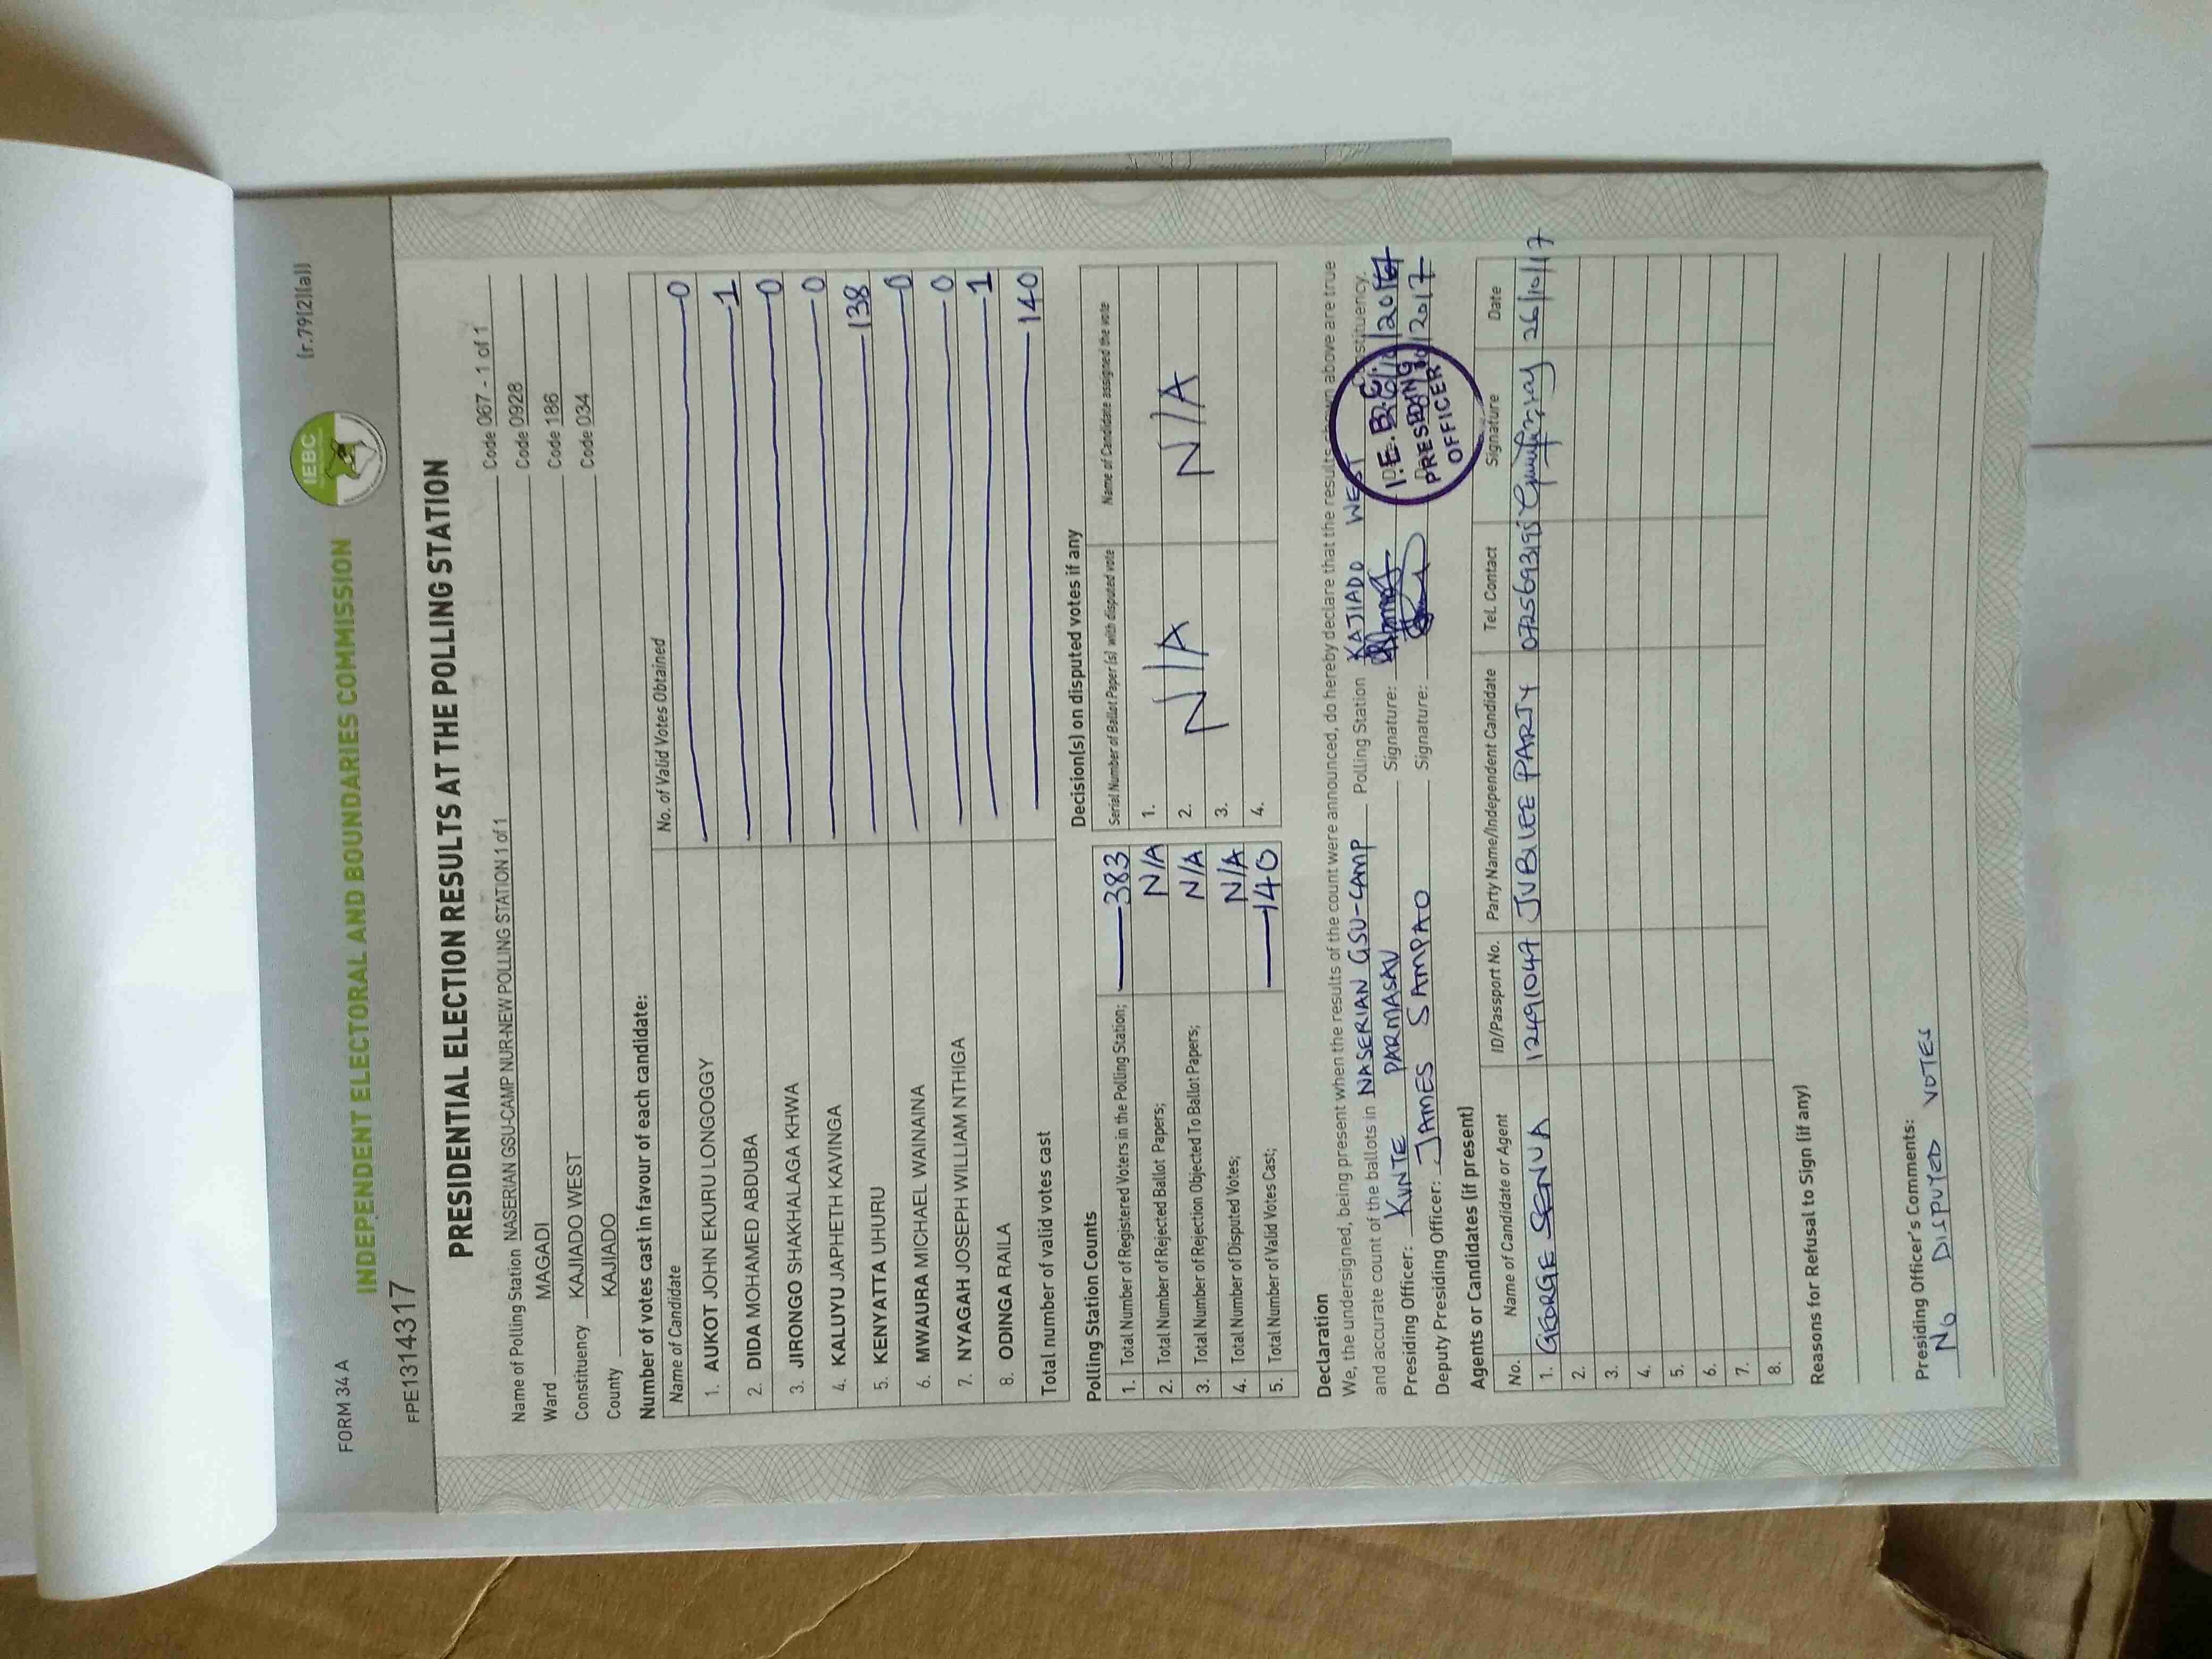 FORM 34 A
(r.79(2)(a))
IEBC
INDEPENDENT ELECTORAL AND BOUNDARIES COMMISSION
FPE1314317
PRESIDENTIAL ELECTION RESULTS AT THE POLLING STATION
Name of Polling Station NASERIAN GSU-CAMP NUR-NEW POLLING STATION 1 of 1 Code 067 - 1 of 1
Ward MAGADI Code 0928
Constituency KAJIADO WEST Code 186
County KAJIADO Code 034
Number of votes cast in favour of each candidate:
Name of Candidate No. of Valid Votes Obtained
1. AUKOT JOHN EKURU LONGOGGY 0
2. DIDA MOHAMED ABDUBA 1
3. JIRONGO SHAKHALAGA KHWA 0
4. KALUYU JAPHETH KAVINGA 0
5. KENYATTA UHURU 138
6. MWAURA MICHAEL WAINAINA 0
7. NYAGAH JOSEPH WILLIAM NTHIGA 0
8. ODINGA RAILA 1
Total number of valid votes cast 140
Polling Station Counts
1. Total Number of Registered Voters in the Polling Station; 383
2. Total Number of Rejected Ballot Papers; N/A
3. Total Number of Rejection Objected To Ballot Papers; N/A
4. Total Number of Disputed Votes; N/A
5. Total Number of Valid Votes Cast; 140
Decision(s) on disputed votes if any
Serial Number of Ballot Paper(s) with disputed vote Name of Candidate assigned the vote
1.
2. N/A N/A
3.
4.
Declaration
We, the undersigned, being present when the results of the count were announced, do hereby declare that the results shown above are true
and accurate count of the ballots in NASERIAN GSU-CAMP Polling Station KAJIADO WEST Constituency.
Presiding Officer: KUNTE PARMASAU Signature:
Deputy Presiding Officer: JAMES SAMPAO Signature: 2017
I.E.B.C.
PRESIDING
OFFICER
Agents or Candidates (if present)
No. Name of Candidate or Agent ID/Passport No. Party Name/Independent Candidate Tel. Contact Signature Date
1. GEORGE SENUA 12491047 JUBILEE PARTY 0725693195 26/10/17
2.
3.
4.
5.
6.
7.
8.
Reasons for Refusal to Sign (if any)
Presiding Officer's Comments:
No DISPUTED VOTES